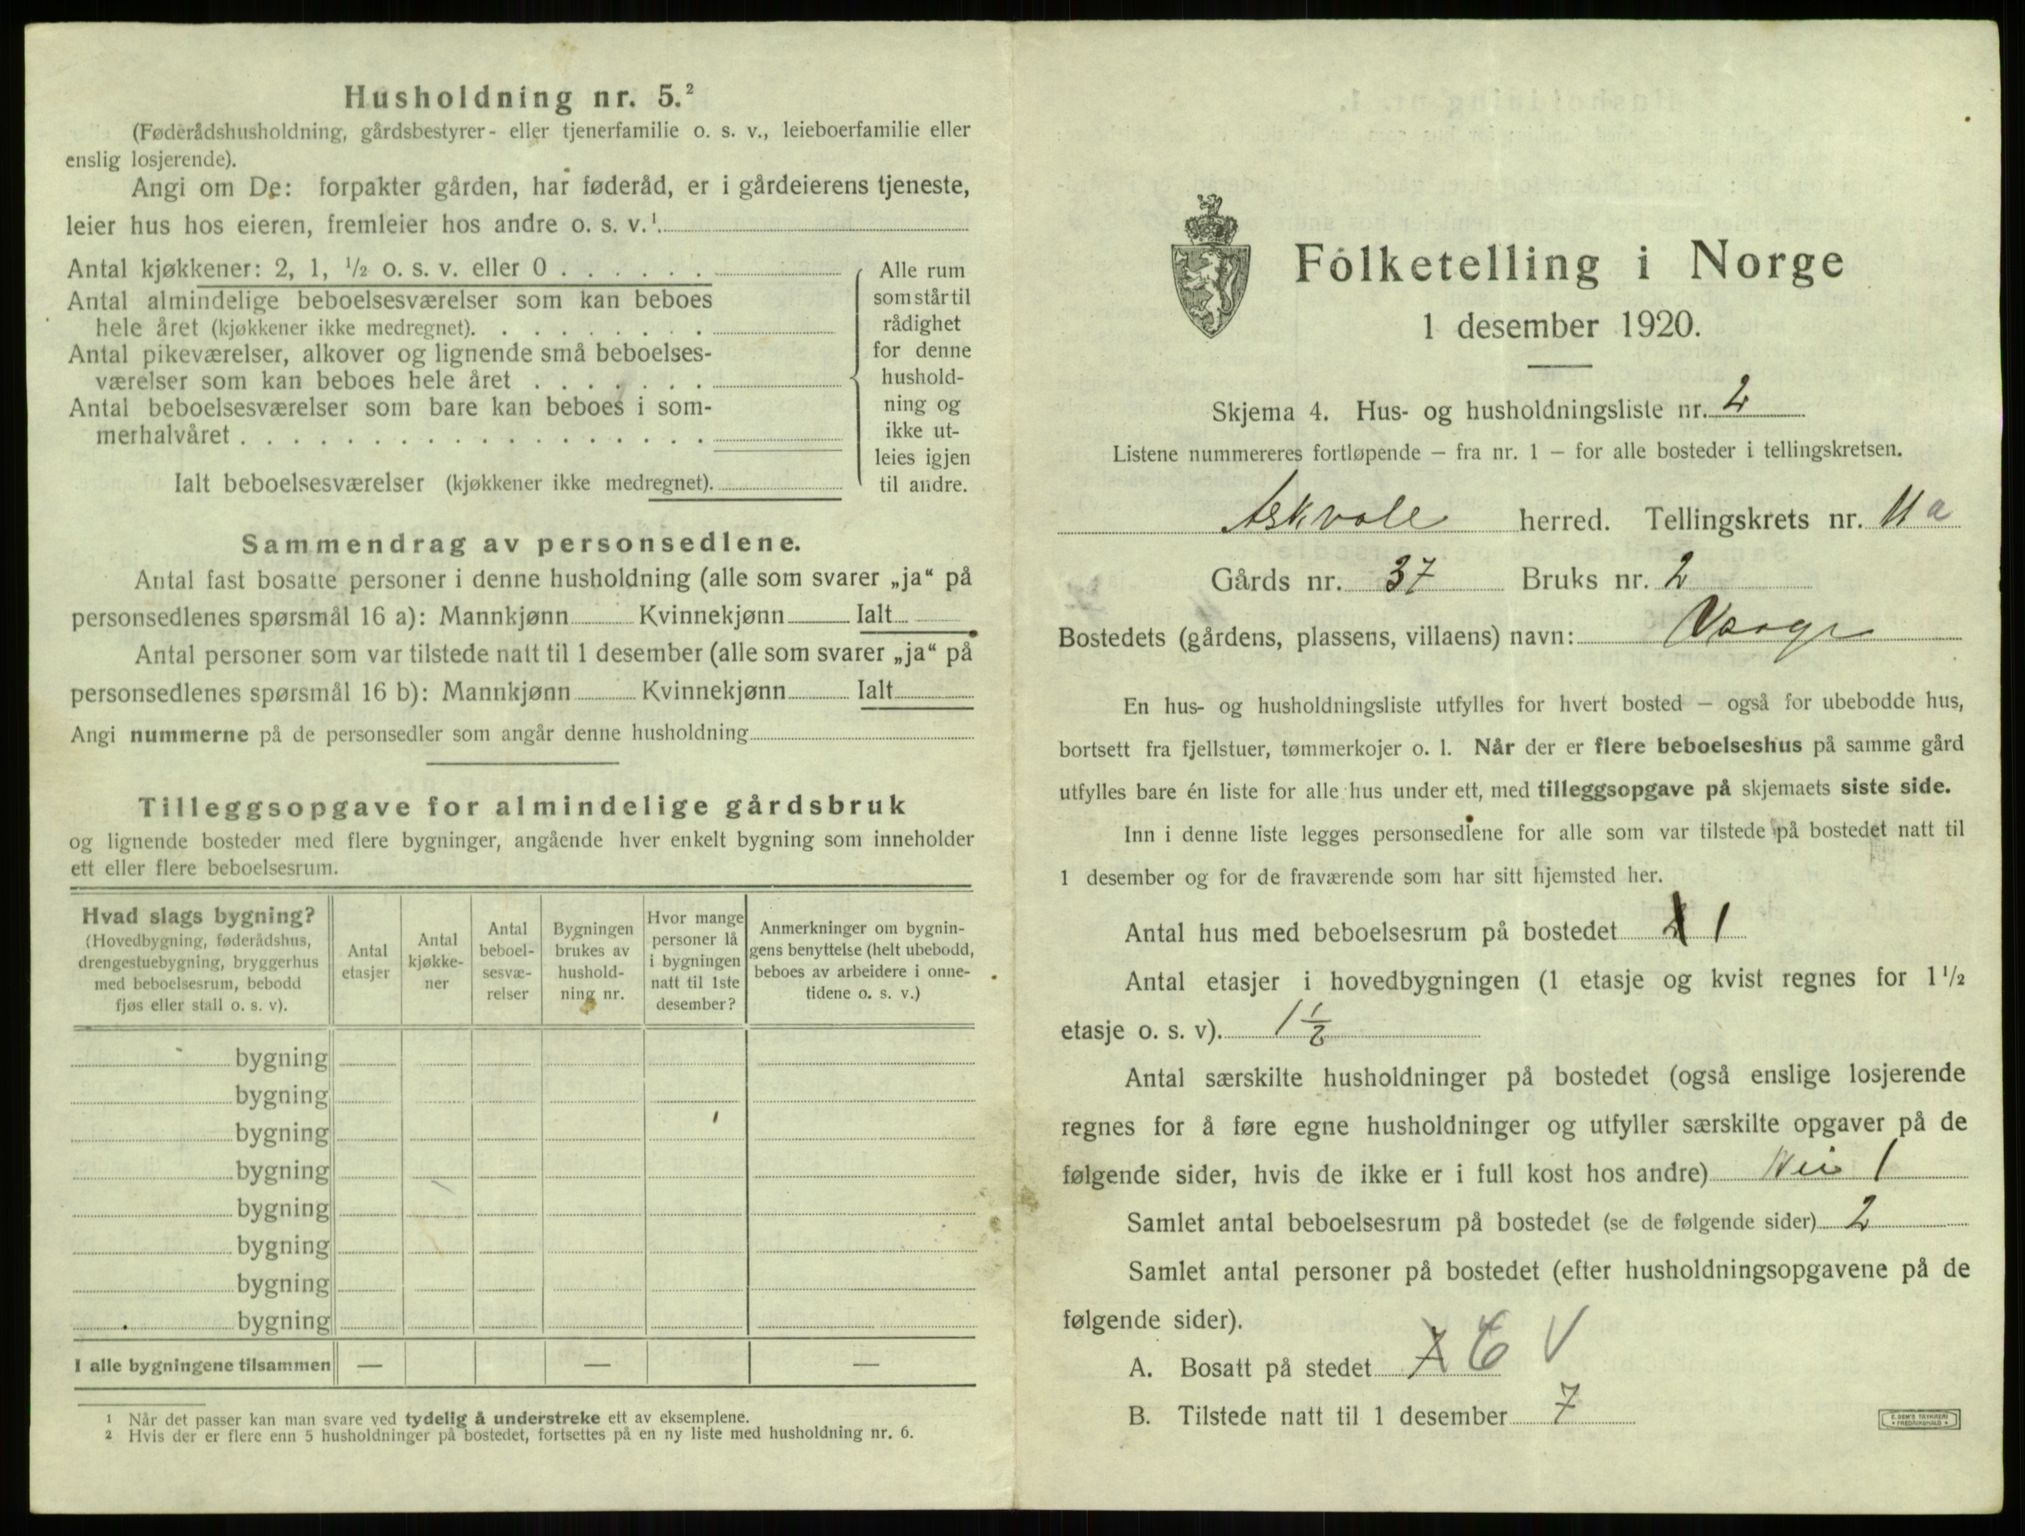 Husholdning nr. 5.²
(Føderådshusholdning, gårdsbestyrer- eller tjenerfamilie o. s. v., leieboerfamilie eller
enslig losjerende).
Angi om De: forpakter gården, har føderåd, er i gårdeierens tjeneste,
leier hus hos eieren, fremleier hos andre o. s. v.¹
Antal kjøkkener: 2, 1, ½ o. s. v. eller 0
Antal almindelige beboelsesværelser som kan beboes
hele året (kjøkkener ikke medregnet).
Antal pikeværelser, alkover og lignende små beboelses-
værelser som kan beboes hele året
Antal beboelsesværelser som bare kan beboes i som-
merhalvåret
Ialt beboelsesværelser (kjøkkener ikke medregnet).
Alle rum
som står til
rådighet
for denne
hushold-
ning og
ikke ut-
leies igjen
til andre.
Sammendrag av personsedlene.
Antal fast bosatte personer i denne husholdning (alle som svarer „ja“ på
personsedlenes spørsmål 16 a): Mannkjønn Kvinnekjønn Ialt
Antal personer som var tilstede natt til 1 desember (alle som svarer „ja“ på
personsedlenes spørsmål 16 b): Mannkjønn Kvinnekjønn Ialt
Angi nummerne på de personsedler som angår denne husholdning
Tilleggsopgave for almindelige gårdsbruk
og lignende bosteder med flere bygninger, angående hver enkelt bygning som inneholder
ett eller flere beboelsesrum.
Hvad slags bygning?
(Hovedbygning, føderådshus,
drengestuebygning, bryggerhus
med beboelsesrum, bebodd
fjøs eller stall o. s. v).
Antal
etasjer
Antal
kjøkke-
ner
Antal
beboel-
sesvæ-
relser
Bygningen
brukes av
hushold-
ning nr.
Hvor mange
personer lå
i bygningen
natt til 1ste
desember?
Anmerkninger om bygnin-
gens benyttelse (helt ubebodd,
beboes av arbeidere i onne-
tidene o. s. v.)
bygning
bygning
bygning
bygning
bygning
bygning
bygning
bygning
I alle bygningene tilsammen — — —
1 Når det passer kan man svare ved tydelig å understreke ett av eksemplene.
2 Hvis der er flere enn 5 husholdninger på bostedet, fortsettes på en ny liste med husholdning nr. 6.
Folketelling i Norge
1 desember 1920.
Skjema 4. Hus- og husholdningsliste nr. 2
Listene nummereres fortløpende — fra nr. 1 — for alle bosteder i tellingskretsen.
Askvoll herred. Tellingskrets nr. 11 a
Gårds nr. 37 Bruks nr. 2
Bostedets (gårdens, plassens, villaens) navn:
En hus- og husholdningsliste utfylles for hvert bosted — også for ubebodde hus,
bortsett fra fjellstuer, tømmerkojer o. l. Når der er flere beboelseshus på samme gård
utfylles bare én liste for alle hus under ett, med tilleggsopgave på skjemaets siste side.
Inn i denne liste legges personsedlene for alle som var tilstede på bostedet natt til
1 desember og for de fraværende som har sitt hjemsted her.
Antal hus med beboelsesrum på bostedet 2 1
Antal etasjer i hovedbygningen (1 etasje og kvist regnes for 1 ½
etasje o. s. v). 1 ½
Antal særskilte husholdninger på bostedet (også enslige losjerende
regnes for å føre egne husholdninger og utfyller særskilte opgaver på de
følgende sider, hvis de ikke er i full kost hos andre) Nei 1
Samlet antal beboelsesrum på bostedet (se de følgende sider) 2
Samlet antal personer på bostedet (efter husholdningsopgavene på de
følgende sider).
A. Bosatt på stedet 7 6 V
B. Tilstede natt til 1 desember 7
E. SEM'S TRYKKERI
FREDRIKSHALD